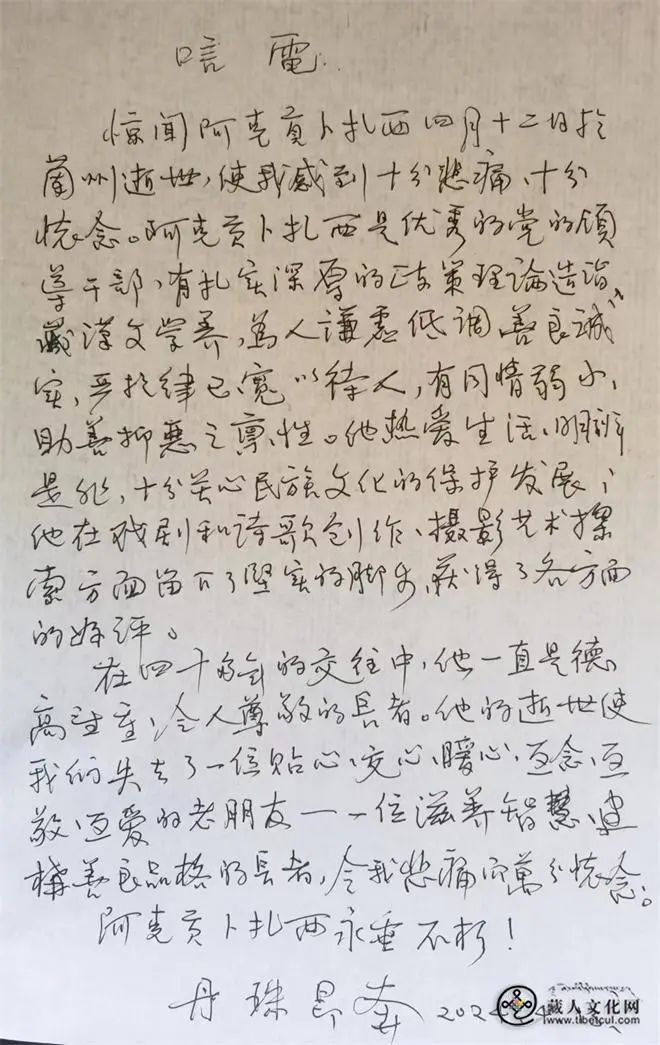 唁電
惊闻阿克贡卜扎西四月十二日於
蘭州逝世,使我感到十分悲痛、十分
怀念。阿克贡卜扎西是优秀的党的領
导干部,有扎实深厚的政策理論造诣、
藏漢文学养,為人謙虚低調善良誠
实,严於律已寬以待人,有同情弱小、
助善抑惡之禀性。他热爱生活、明辨
是非,十分关心民族文化的保护发展;
他在戏剧和诗歌创作、摄影艺术探
索方面留下了堅实的脚步,获得了各方面
的好评。
在四十多年的交往中,他一直是德
高望重、令人尊敬的長者。他的逝世使
我们失去了一位貼心、交心、暖心、互念、互
敬、互爱的老朋友——一位滋养智慧、建
構善良品格的長者,令我悲痛而萬分怀念。
阿克贡卜扎西永垂不朽!
丹珠昂奔 2024
藏人文化网
www.tibetcul.com